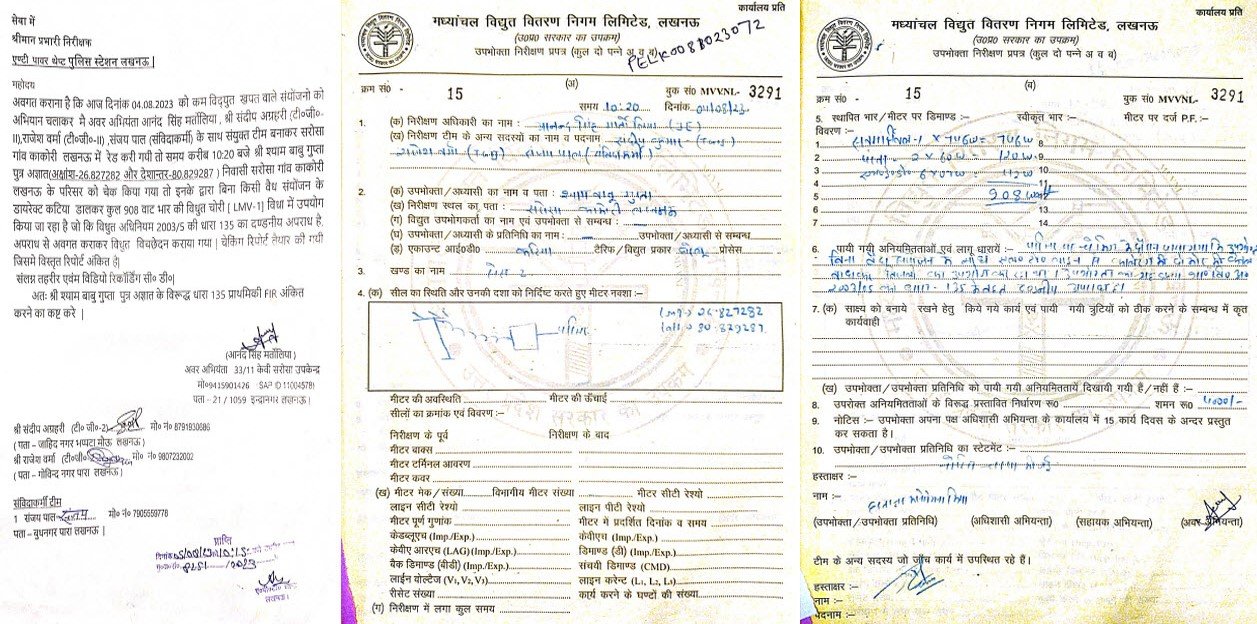 सेवा में
श्रीमान प्रभारी निरीक्षक
एण्टी पावर थेप्ट पुलिस स्टेशन लखनऊ |
महोदय
अवगत कराना है कि आज दिनांक 04.08.2023 को कम विद्युत खपत वाले संयोजनो को
अभियान चलाकर मै अवर अभियंता आनंद सिंह मर्तोलिया , श्री संदीप अग्रहरी (टी०जी०-
II),राजेश वर्मा (टी०जी०-II) ,संजय पाल (संविदाकर्मी) के साथ संयुक्त टीम बनाकर सरोसा
गांव काकोरी लखनऊ में रेड करी गयी तो समय करीब 10:20 बजे श्री श्याम बाबु गुप्ता
पुत्र अज्ञात(अक्षांश-26.827282 और देशान्तर-80.829287 ) निवासी सरोसा गांव काकोरी
लखनऊ के परिसर को चेक किया गया तो इनके द्वारा बिना किसी वैध संयोजन के
डायरेक्ट कटिया डालकर कुल 908 वाट भार की विधुत चोरी ( LMV-1] विधा में उपयोग
किया जा रहा है जो कि विधुत अधिनियम 2003/5 की धारा 135 का दण्डनीय अपराध है,
अपराध से अवगत कराकर विधुत विच्छेदन कराया गया | चेकिंग रिपोर्ट तैयार की गयी
जिसमे विस्तृत रिपोर्ट अंकित है|
संलग्न तहरीर एवंम विडियो रिकॉर्डिंग सी० डी०|
अतः श्री श्याम बाबु गुप्ता पुत्र अज्ञात के विरूद्ध धारा 135 प्राथमिकी FIR अंकित
करने का कष्ट करे |
(आनंद सिंह मर्तोलिया )
अवर अभियंता 33/11 केवी सरोसा उपकेन्द्र
मो०9415901426 SAP ID 11004578)
पता – 21 / 1059 इन्द्रानगर लखनऊ |
श्री संदीप अग्रहरी (टी० जी०-2) मो० नं० 8791930686
( पता – जाहिद नगर भपटा मोऊ लखनऊ )
श्री राजेश वर्मा (टी०जी०-2) मो० नं० 9807232002
( पता – गोविन्द नगर पारा लखनऊ )
संविदाकर्मी टीम
1 संजय पाल मो० नं० 7905559778
पता – बुधनगर पारा लखनऊ |
प्राप्ति
लखनऊ।
कार्यालय प्रति
मध्यांचल विद्युत वितरण निगम लिमिटेड, लखनऊ
(उ०प्र० सरकार का उपक्रम)
उपभोक्ता निरीक्षण प्रपत्र (कुल दो पन्ने अ व ब)
PELK0081023072
(अ)
क्रम सं० - 15 बुक सं० MVVNL- 3291
समय 10:20 दिनांक 04/08/23
1. (क) निरीक्षण अधिकारी का नाम :– आनन्द सिंह मर्तोलिया (JE)
(ख) निरीक्षण टीम के अन्य सदस्यों का नाम व पदनाम
2. (क) उपभोक्ता/अध्यासी का नाम व पता : श्याम बाबू गुप्ता
(ख) निरीक्षण स्थल का पता : सरोसा काकोरी लखनऊ
(ग) विद्युत उपयोगकर्ता का नाम एवं उपभोक्ता से सम्बन्ध :–
(घ) उपभोक्ता/अध्यासी के प्रतिनिधि का नाम :– उपभोक्ता/अध्यासी से सम्बन्ध
(ड) एकाउण्ट आई०डी० कटिया टेरिफ/विद्युत प्रकार प्रोसेस
3. खण्ड का नाम
4. (क) सील का स्थिति और उनकी दशा को निर्दिष्ट करते हुए मीटर नक्शा :–
26.827282
80.829287
मीटर की अवस्थिति मीटर की ऊँचाई
सीलों का क्रमांक एवं विवरण :–
निरीक्षण के पूर्व निरीक्षण के बाद
मीटर बाक्स
मीटर टर्मिनल आवरण
मीटर कवर
(ख) मीटर मेक/संख्या विभागीय मीटर संख्या मीटर सीटी रेश्यो
लाइन सीटी रेश्यो लाइन पीटी रेश्यो
मीटर पूर्ण गुणांक मीटर में प्रदर्शित दिनांक व समय
केडब्लूएच (Imp./Exp.) केवीएच (Imp./Exp.)
केवीए आरएच (LAG) (Imp./Exp.) डिमाण्ड (डी) (Imp./Exp.)
बैक डिमाण्ड (बीडी) (Imp./Exp.) संचयी डिमाण्ड (CMD)
लाईन वोल्टेज (V₁, V₂, V₃) लाइन करेन्ट (L₁, L₂, L₃)
रीसेट संख्या कार्य करने के घण्टों की संख्या
(ग) निरीक्षण में लगा कुल समय
कार्यालय प्रति
मध्यांचल विद्युत वितरण निगम लिमिटेड, लखनऊ
(उ०प्र० सरकार का उपक्रम)
उपभोक्ता निरीक्षण प्रपत्र (कुल दो पन्ने अ व ब)
(ब)
क्रम सं० - 15 बुक सं० MVVNL- 3291
5. स्थापित भार/मीटर पर डिमाण्ड :– स्वीकृत भार :– मीटर पर दर्ज P.F. :–
विवरण :–
1 1 x 746w = 746w 8
2 पंखा - 2 x 60w = 120w 9
3 112w 10
4 11
5 908 watt
6 13
7 14
6. पायी गयी अनियमितताओं एवं लागू धारायें :–
7. (क) साक्ष्य को बनाये रखने हेतु किये गये कार्य एवं पायी गयी त्रुटियों को ठीक करने के सम्बन्ध में कृत
कार्यवाही
(ख) उपभोक्ता/उपभोक्ता प्रतिनिधि को पायी गयी अनियमिततायें दिखायी गयी हैं/नहीं हैं :–
8. उपरोक्त अनियमितताओं के विरूद्ध प्रस्तावित निर्धारण रू० शमन रू० 4000/-
9. नोटिस :– उपभोक्ता अपना पक्ष अधिशासी अभियन्ता के कार्यालय में 15 कार्य दिवस के अन्दर प्रस्तुत
कर सकता है।
10. उपभोक्ता/उपभोक्ता प्रतिनिधि का स्टेटमेंट :–
हस्ताक्षर :–
नाम :–
(उपभोक्ता/उपभोक्ता प्रतिनिधि) (अधिशासी अभियन्ता) (सहायक अभियन्ता) (अवर अभियन्ता)
टीम के अन्य सदस्य जो जाँच कार्य में उपस्थित रहे हैं।
हस्ताक्षर :–
नाम :–
पदनाम :–